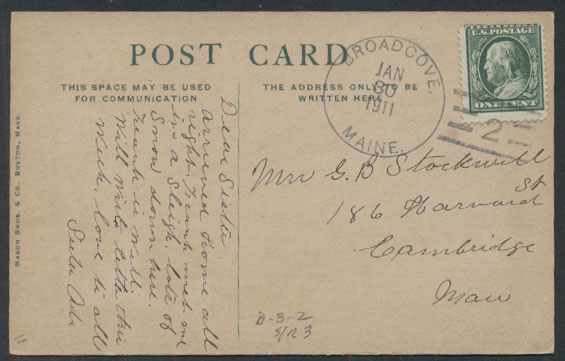 POST CARD
THIS SPACE MAY BE USED
FOR COMMUNICATION
THE ADDRESS ONLY TO BE
WRITTEN HERE
BROADCOVE,
JAN
30
1911
MAINE.
U.S. POSTAGE
ONE CENT
2
Dear Sister
arrived home all
right. Frank met me
in a sleigh, lots of
Snow down here.
Frank is well.
Will write letter this
Week, love to all
Sister Ada
Mrs G. B Stockwell
186 Harvard St
Cambridge
Mass
D-3-2
S/R3
MASON BROS. & CO., BOSTON, MASS.